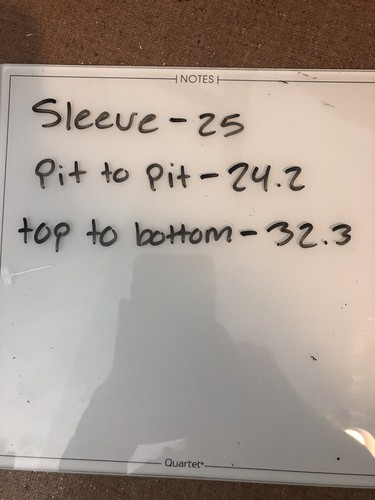 NOTES
Sleeve - 25
Pit to pit - 24.2
top to bottom - 32.3
Quartet